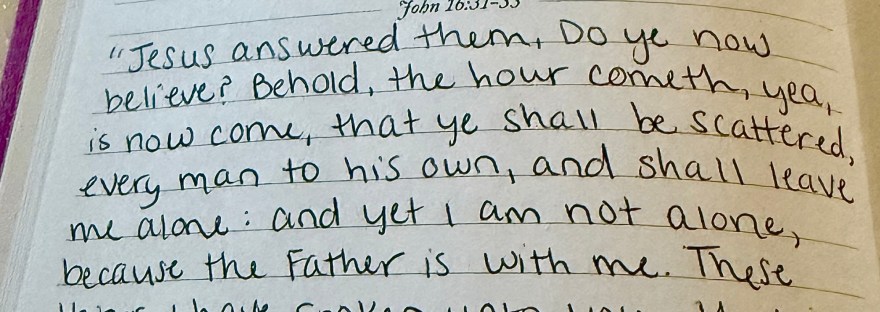 John 16:31-33
"Jesus answered them, Do ye now
believe? Behold, the hour cometh, yea,
is now come, that ye shall be scattered,
every man to his own, and shall leave
me alone: and yet I am not alone,
because the Father is with me. These